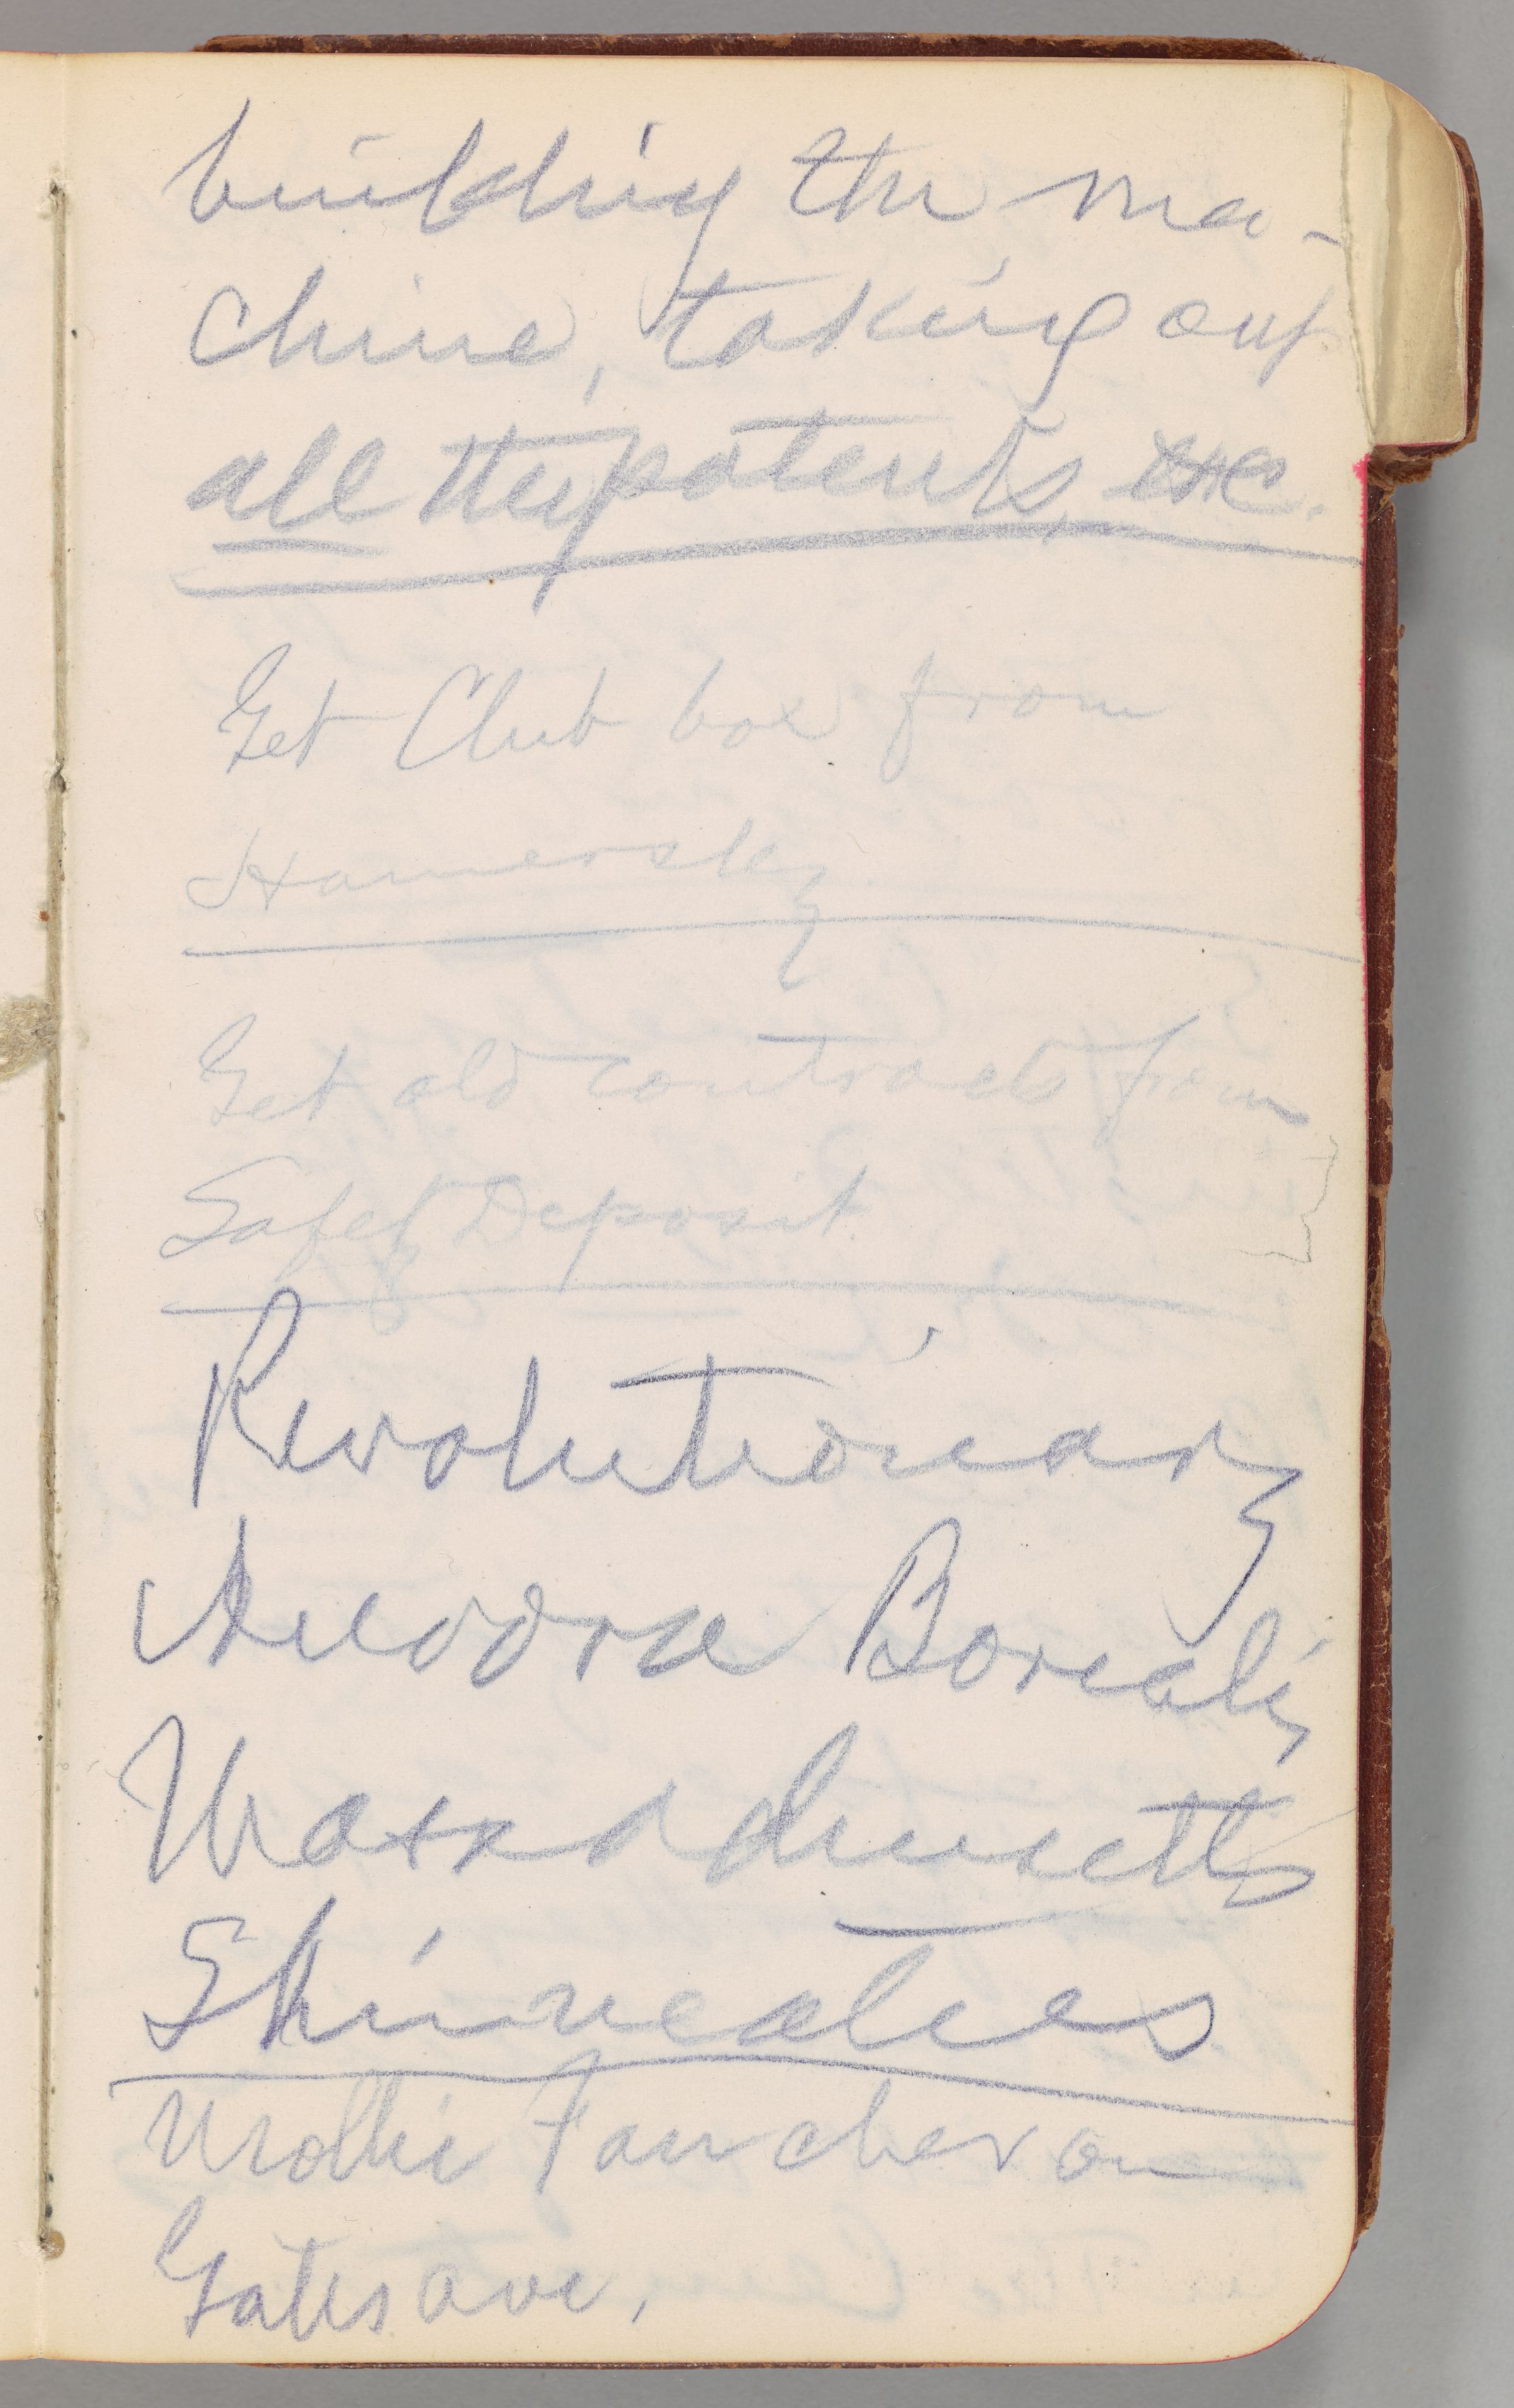 building the ma-
chine, taking out
all the patents, etc.
Get Club box from
Hamersley
Get old contracts from
Safet Deposit.
Revolutionary
Aurora Borealis
Massachusetts
Skineateles
Mollie Fancher on
Gates ave.